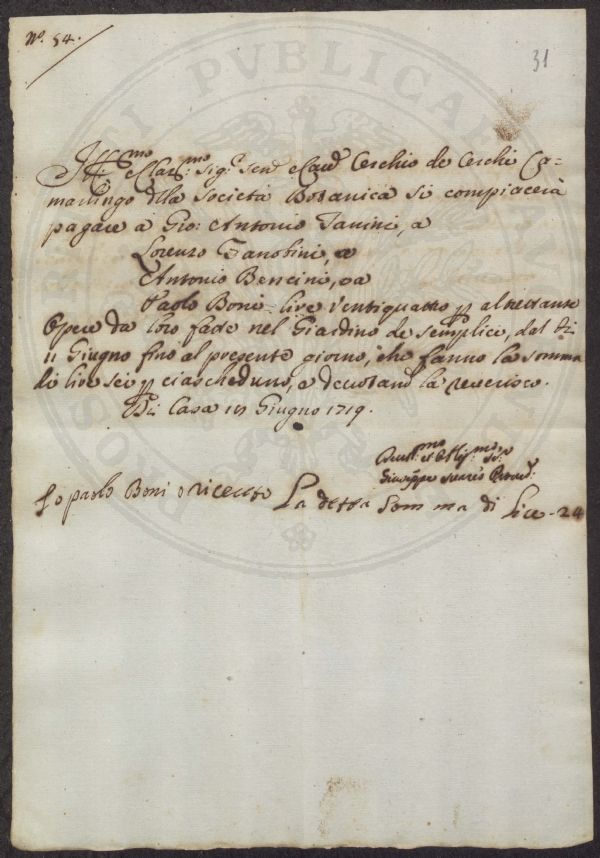 N.º 54.
31
Ill.mo e Clar.mo Sig.r Sen.e e Cav.e Cerchio de Cerchi Ca=
marlingo dlla Società Botanica si compiacerà
pagare à Gio: Antonio Tanini, a
Lorenzo Zanobini, e a
Antonio Bencini, e a
Paolo Boni lire Ventiquattro p altrettante
Opere da loro fatte nel Giardino de semplici, dal dì
11 Giugno fino al presente giorno, che fanno la somma
di lire sei p ciascheduno, e la reverisco.
Di Casa Giugno 1719.
Giuseppe
Io paolo Boni o riceuto La detta Somma di Lire - 24